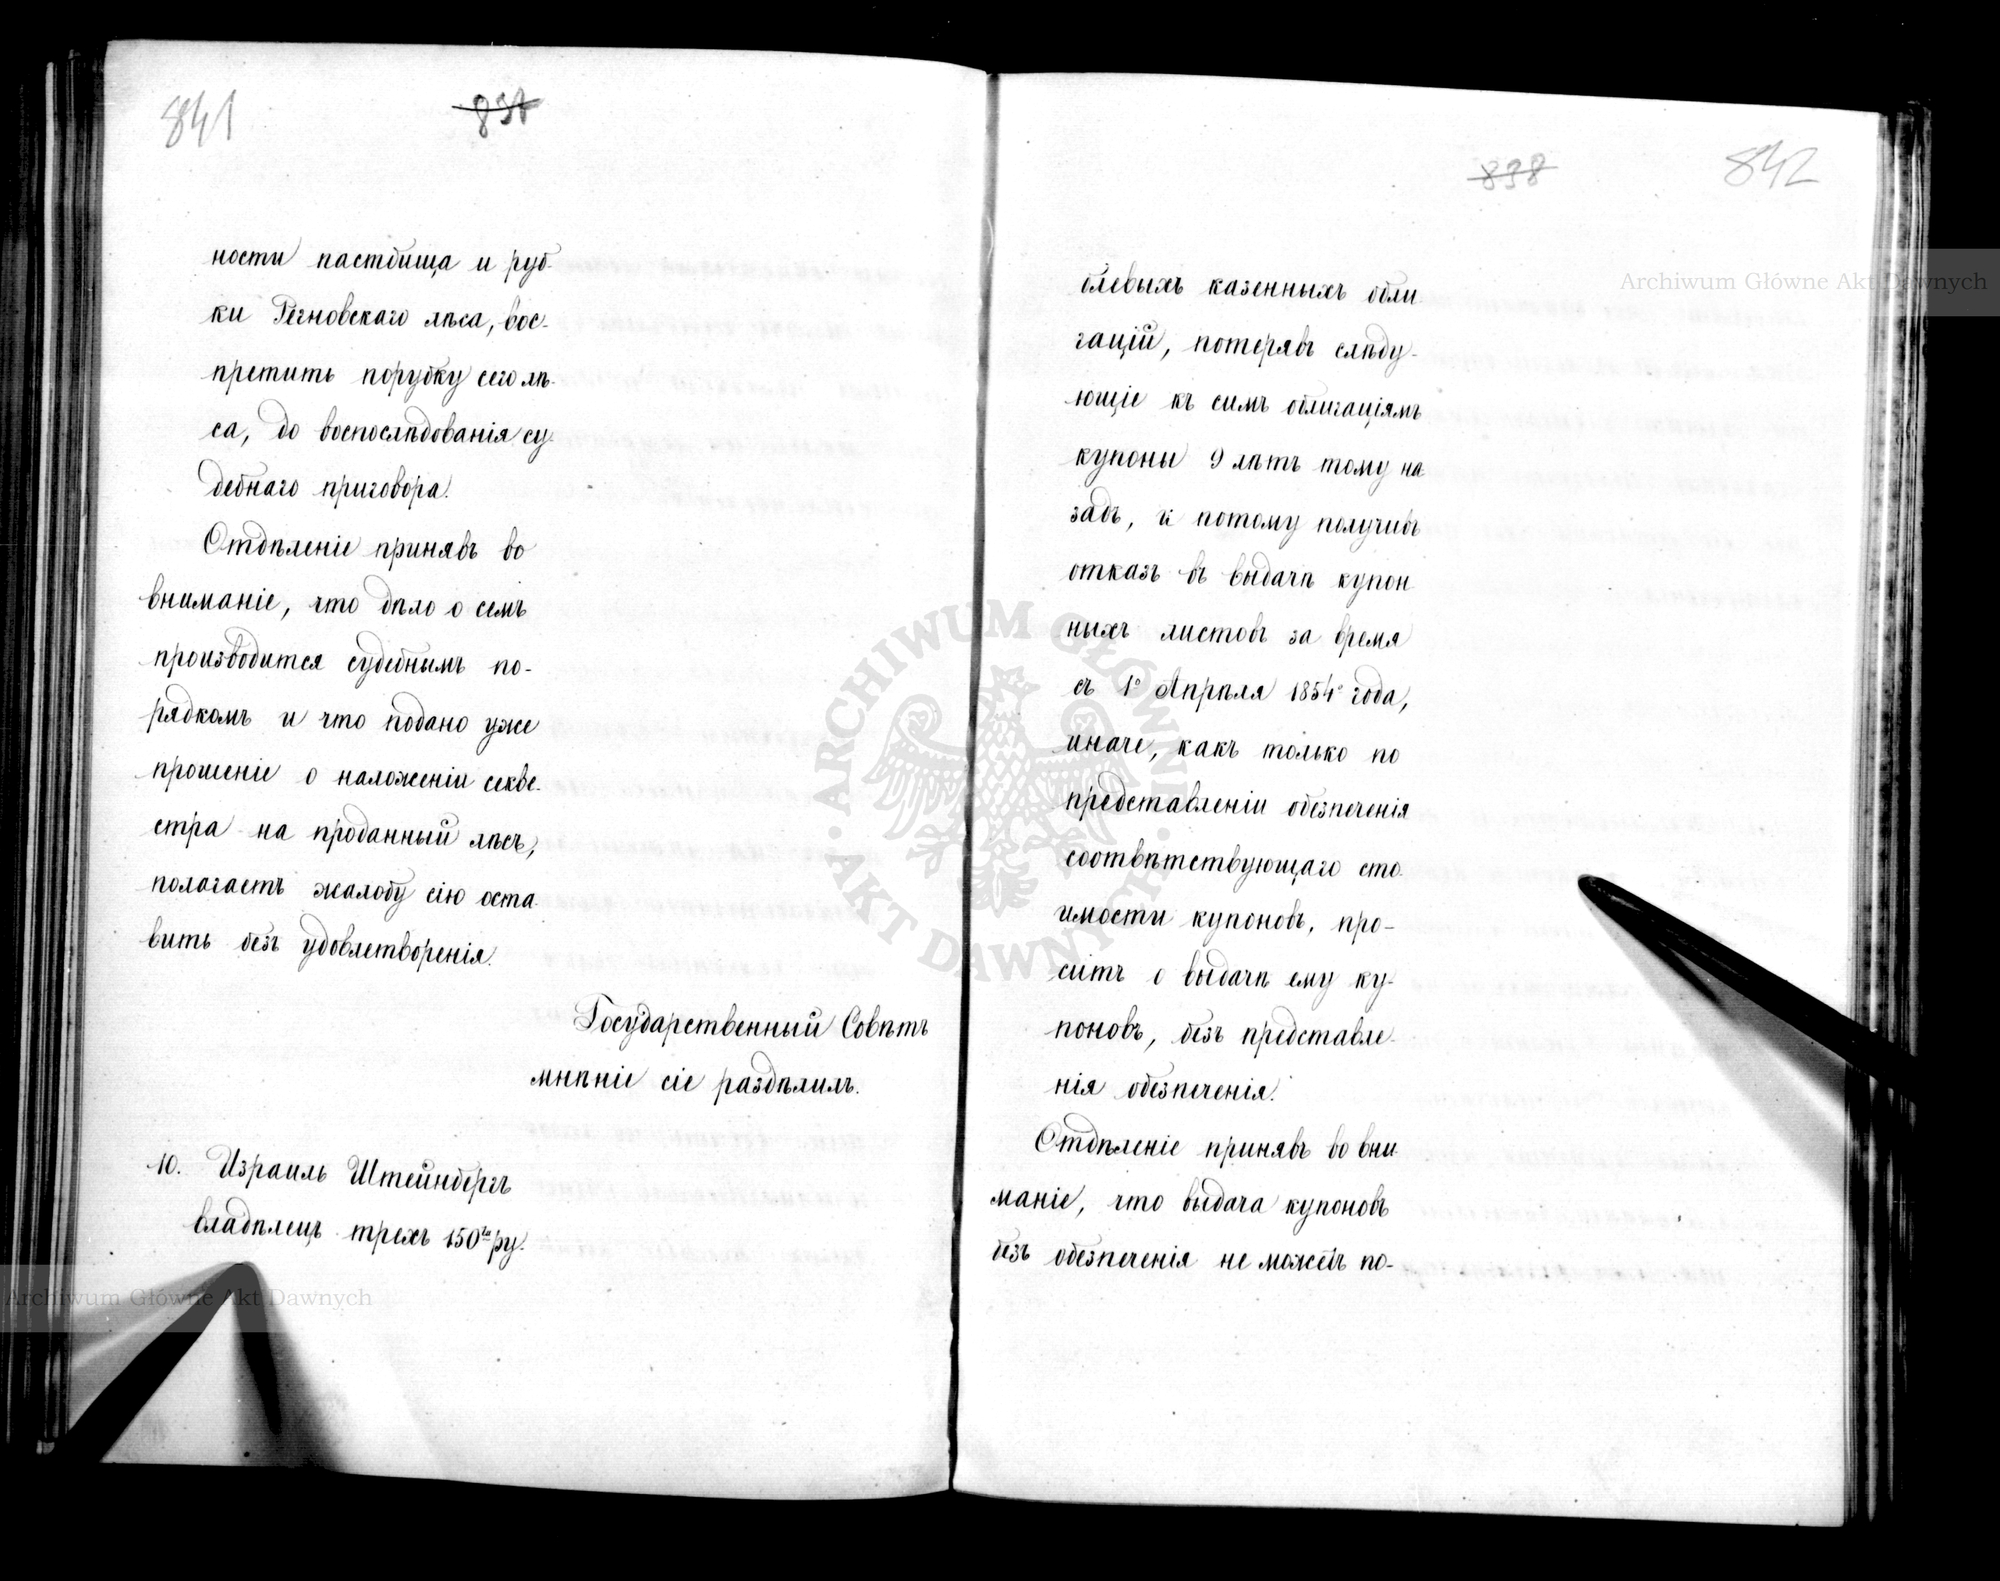 841
837
ности пастбища и руб-
ки Регновскаго лѣса, вос-
претить порубку сего лѣ-
са, до воспослѣдованія су-
дебнаго приговора.
Отдѣленіе принявъ во
вниманіе, что дѣло о семъ
производится судебнымъ по-
рядкомъ и что подано уже
прошеніе о наложеніи секве-
стра на проданный лѣсъ,
полагаетъ жалобу сію оста-
вить безъ удовлетворенія.
Государственный Совѣтъ
мнѣніе сіе раздѣлилъ.
10. Израиль Штейнбергъ
владѣлецъ трехъ 150ти ру-
838
842
блевыхъ казенныхъ обли
гацій, потерявъ слѣду-
ющіе къ симъ облигаціямъ
купоны 9 лѣтъ тому на
задъ, и потому получивъ
отказъ въ выдачѣ купон
ныхъ листовъ за время
съ 1го Апрѣля 1854го года,
иначе, какъ только по
представленіи обезпеченія
соотвѣтствующаго сто
имости купоновъ, про-
ситъ о выдачѣ ему ку-
поновъ, безъ представле-
нія обезпеченія.
Отдѣленіе принявъ во вни
маніе, что выдача купоновъ
безъ обезпеченія не можетъ по-
Archiwum Główne Akt Dawnych
Archiwum Główne Akt Dawnych
ARCHIWUM GŁÓWNE AKT DAWNYCH